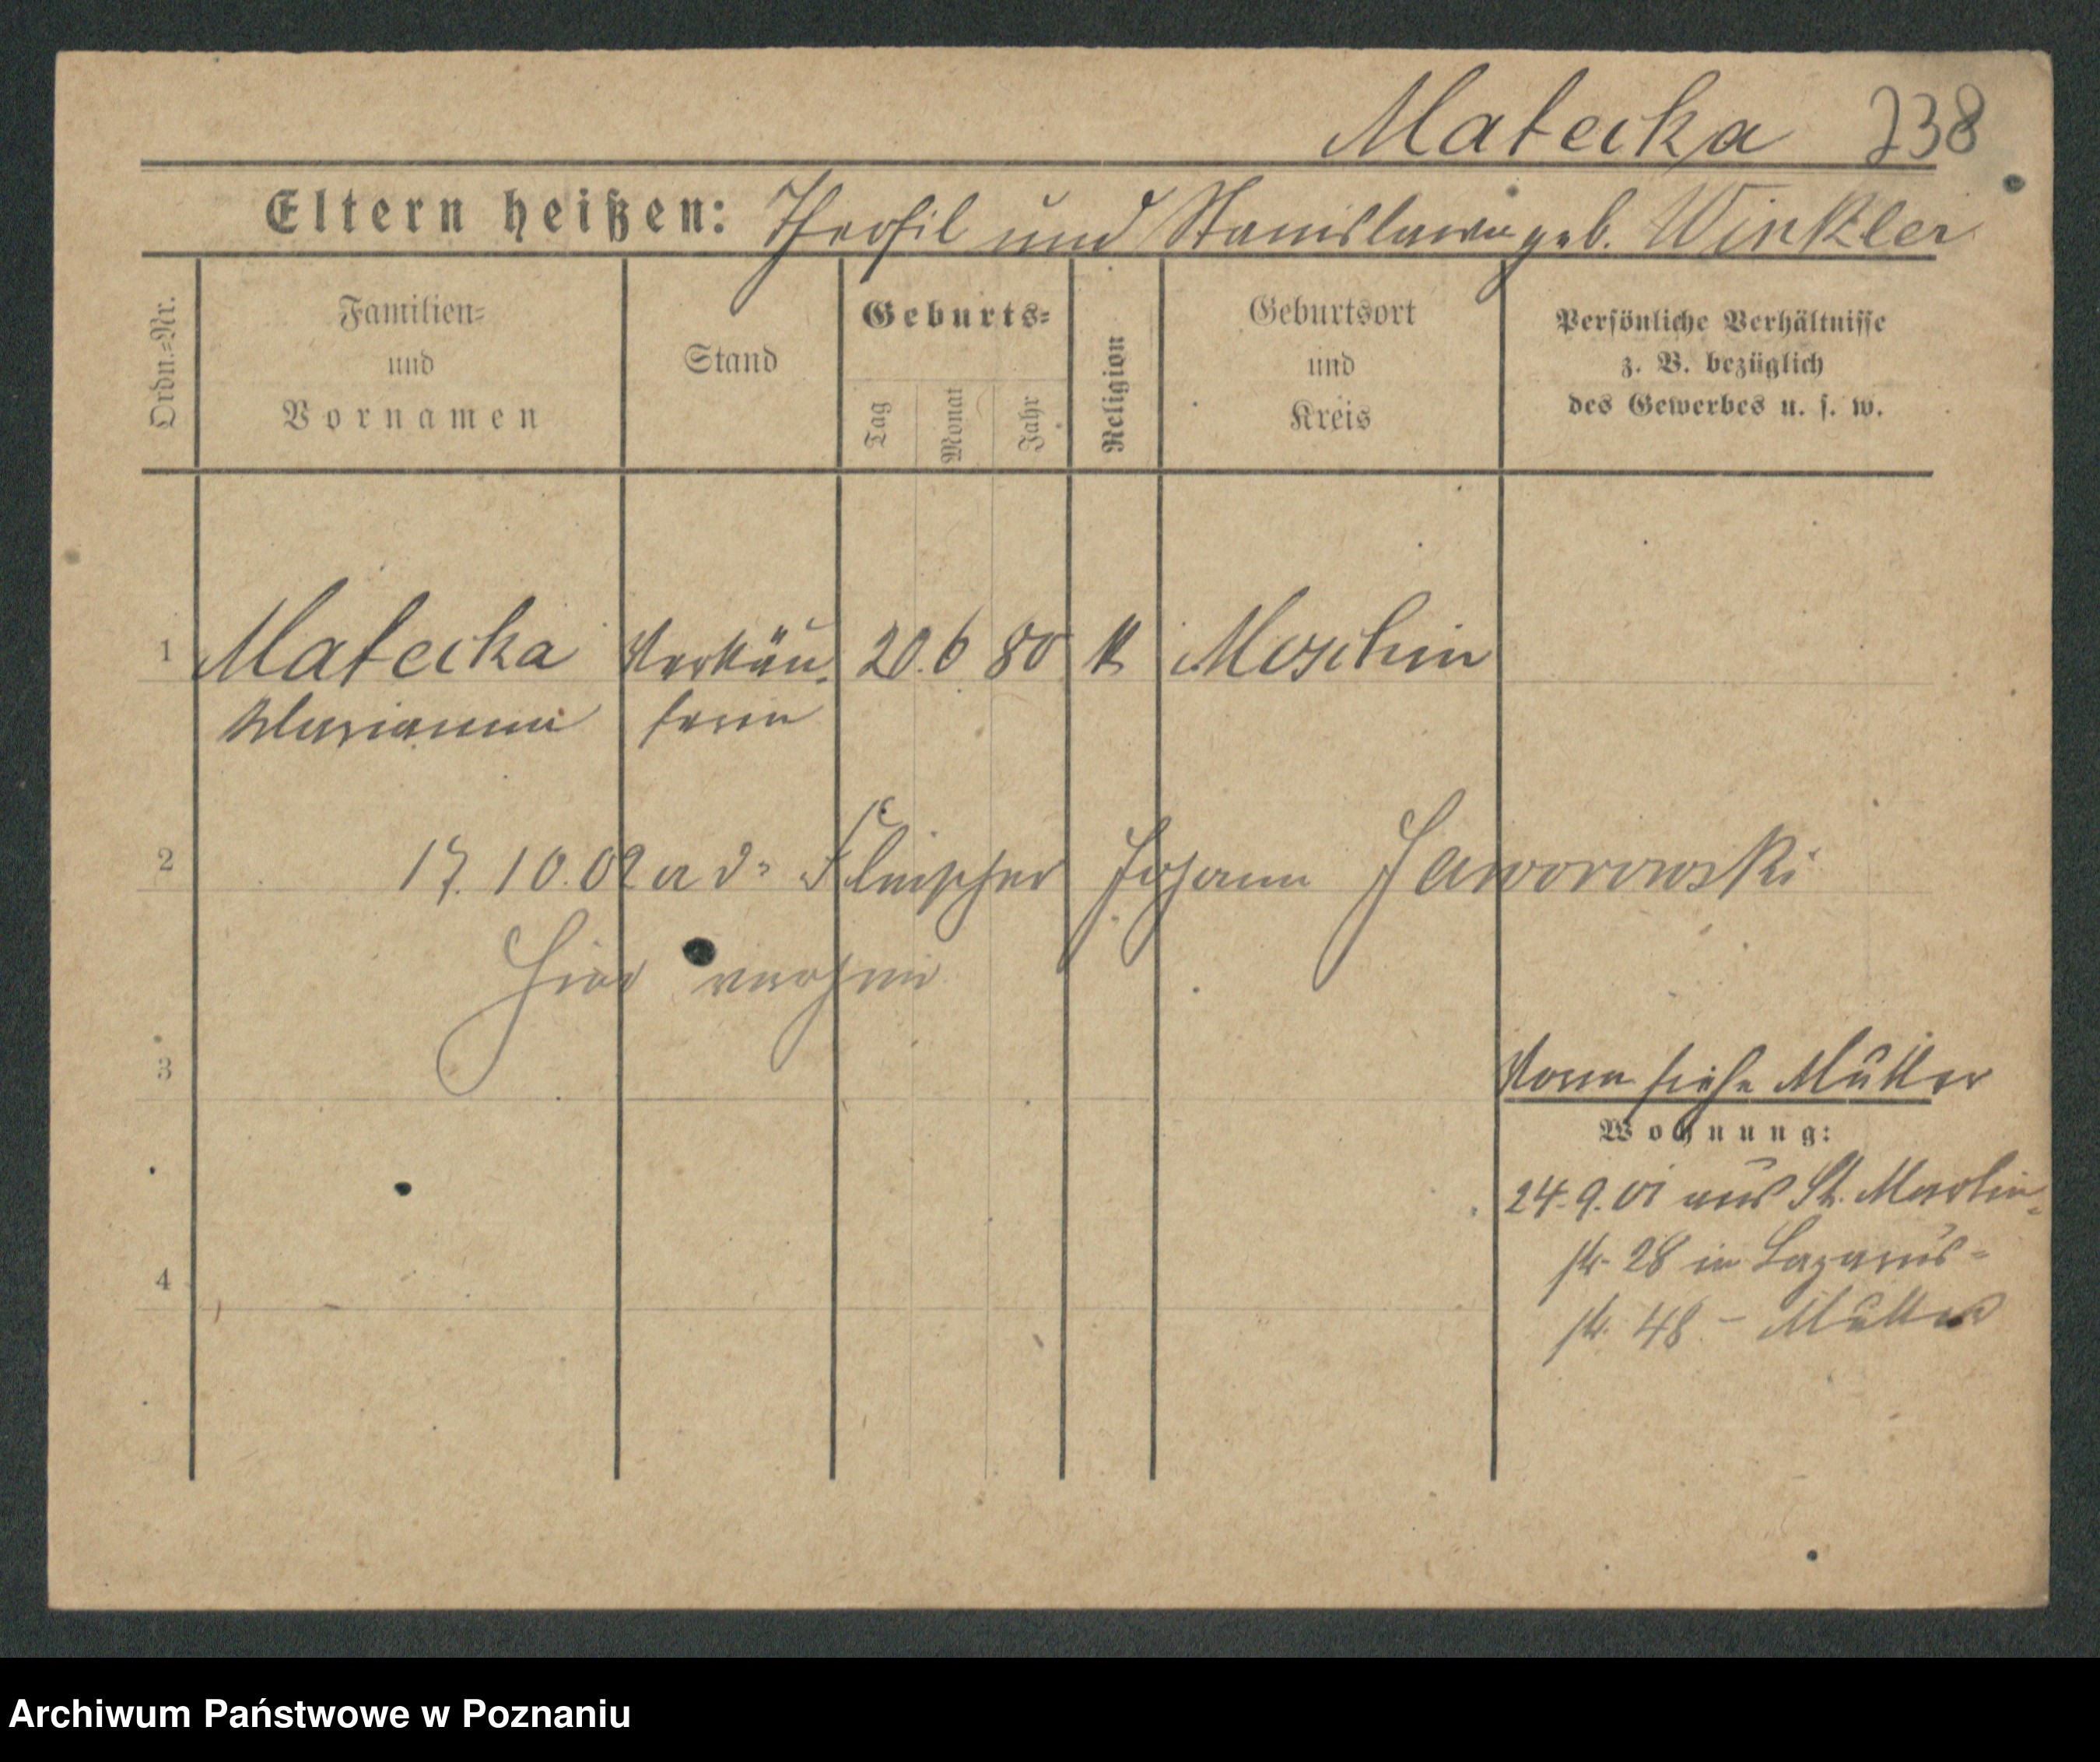 Matecka 738
Eltern heißen: Theofil und Stanislawa geb. Winkler
Ordn.=Nr.
Familien=
und
Vornamen
Stand
Geburts=
Tag
Monat
Jahr
Religion
Geburtsort
und
Kreis
Persönliche Verhältnisse
z. B. bezüglich
des Gewerbes u. s. w.
1 Matecka Verkäu= 20. 6 80 K Moschin
Marianna ferin
2 17. 10. 02 a d. Fleischer Johann Jaworowski
hier verh
3 Vorm siehe Mutter
Wohnung:
24. 9. 01 aus St. Martin=
4 str. 28 in Lazarus=
str. 48 - Mutter
Archiwum Państwowe w Poznaniu